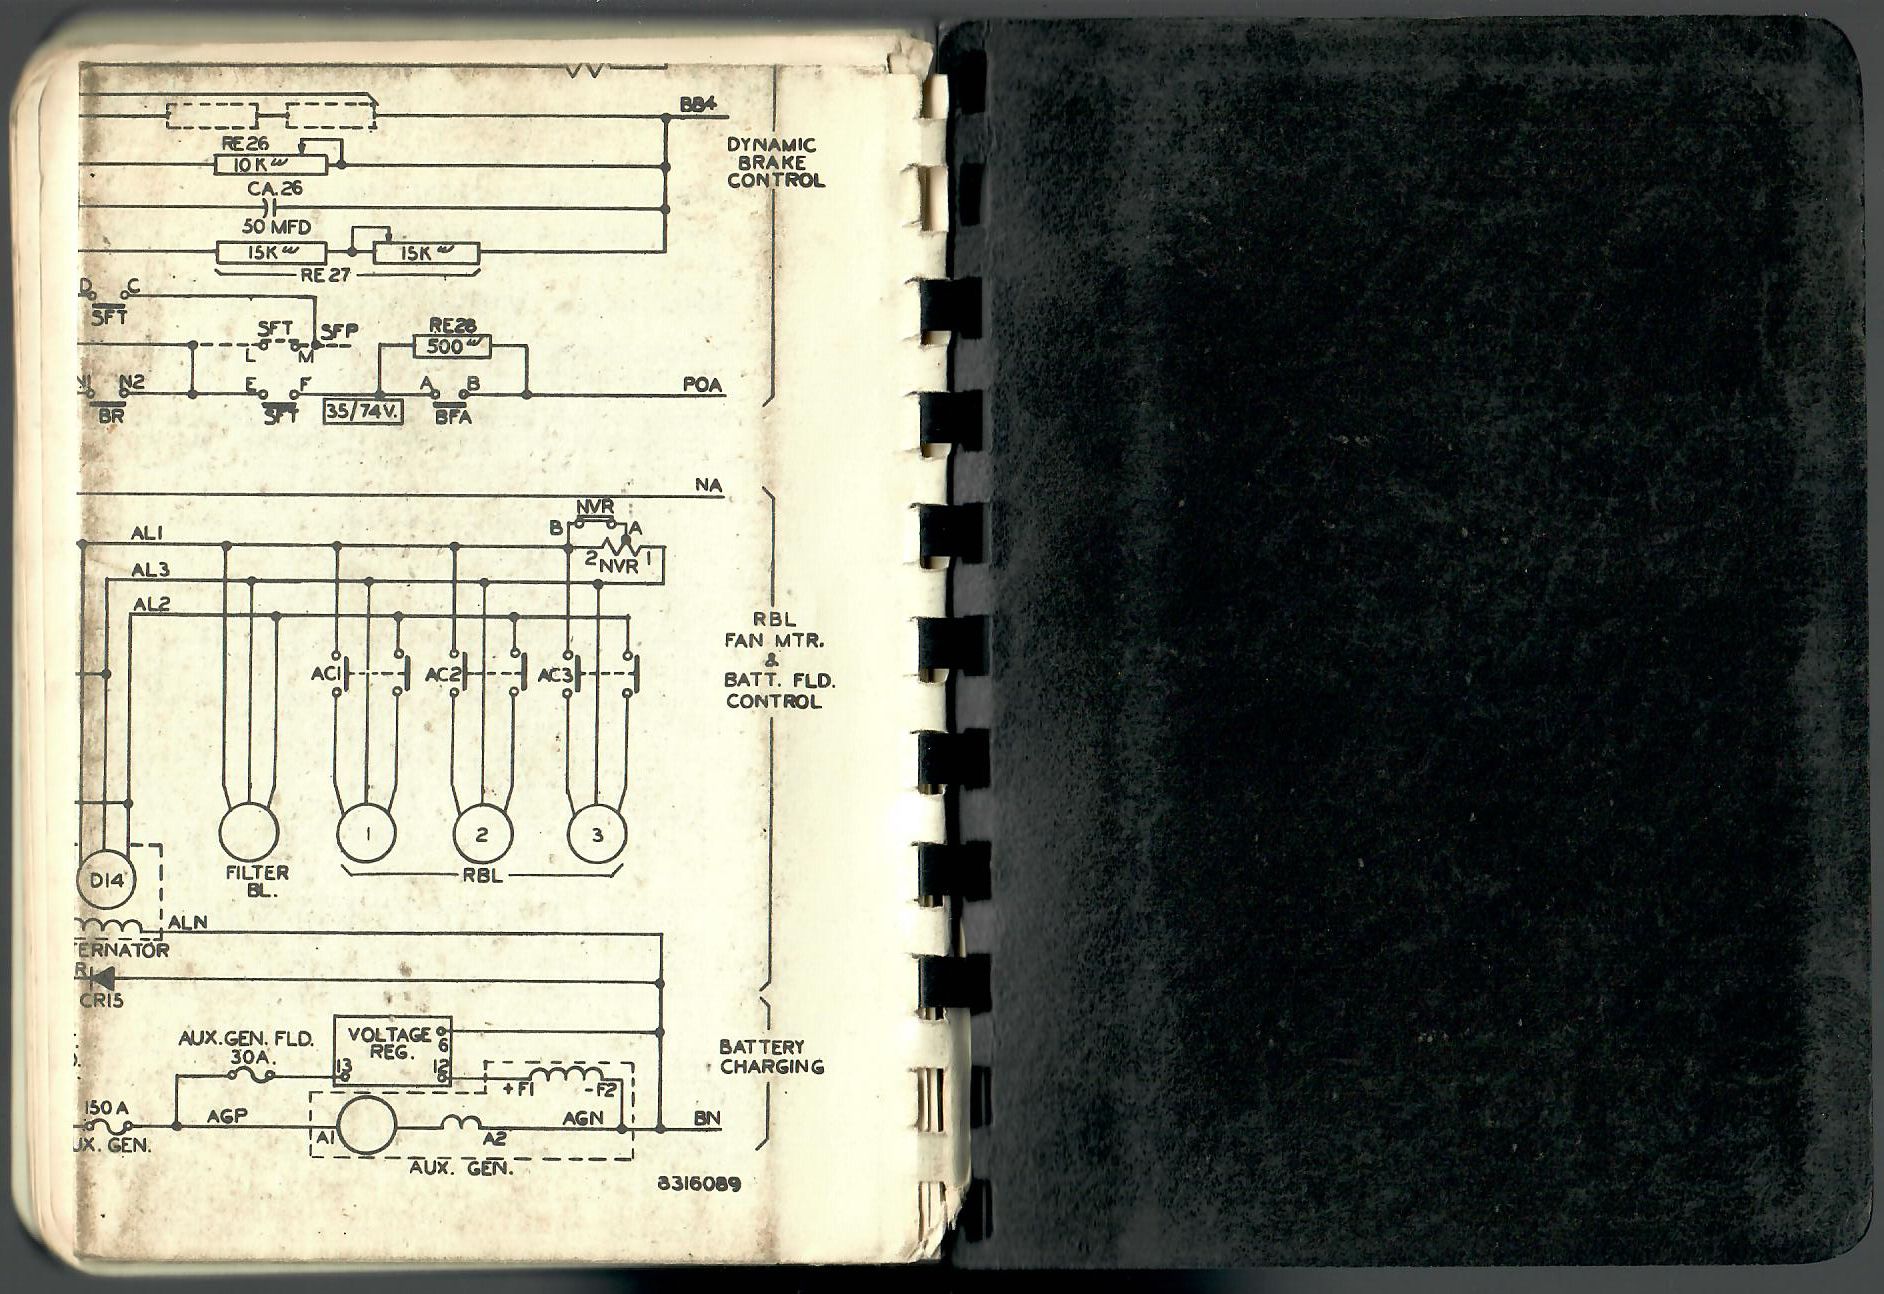 BB4
DYNAMIC
BRAKE
CONTROL
RE26
10K ω
CA.26
50 MFD
15K ω
15K ω
RE 27
D C
SFT
SFT
SFP
L M
RE28
500 ω
N1 N2
BR
E F
SFT
35/74V.
A B
BFA
POA
NA
NVR
B A
2 1
NVR
AL1
AL3
AL2
RBL
FAN MTR.
&
BATT. FLD.
CONTROL
AC1
AC2
AC3
1
2
3
D14
FILTER
BL.
RBL
ALN
TERNATOR
CR15
AUX.GEN. FLD.
30A.
VOLTAGE
REG.
6
13
12
BATTERY
CHARGING
+F1
-F2
150A
UX. GEN.
AGP
A1
A2
AGN
BN
AUX. GEN.
8316089